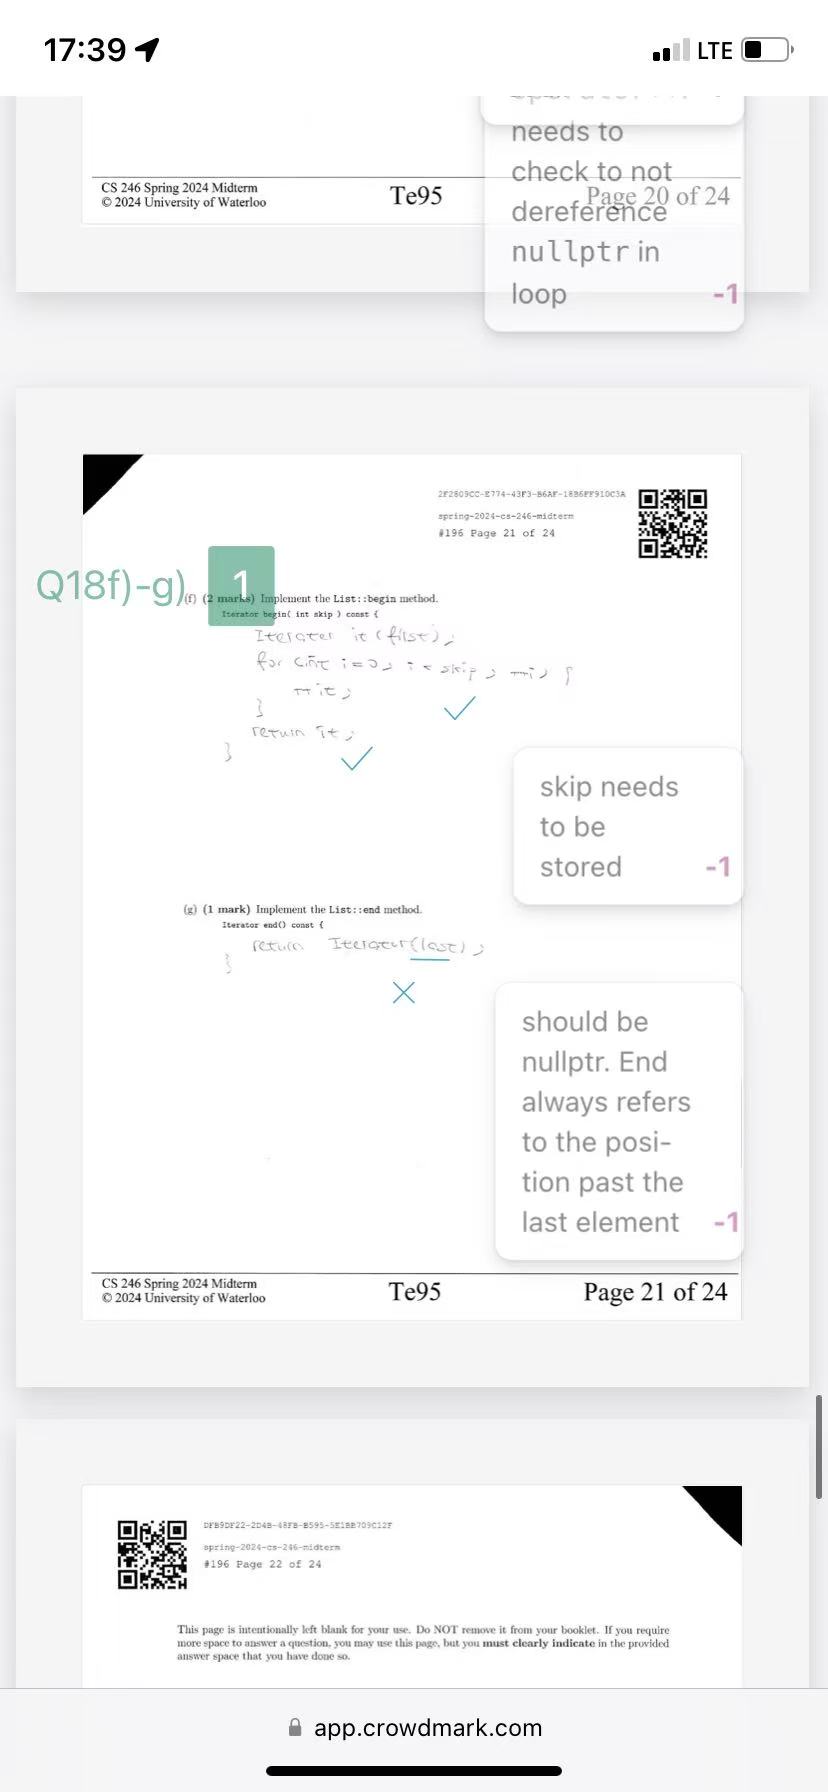 17:39
LTE
needs to
check to not
dereference
nullptr in
loop -1
CS 246 Spring 2024 Midterm
© 2024 University of Waterloo
Te95
Page 20 of 24
2F2809CC-E774-43F3-B6AF-18B6FF910C3A
spring-2024-cs-246-midterm
#196 Page 21 of 24
Q18f)-g) 1
(f) (2 marks) Implement the List::begin method.
Iterator begin( int skip ) const {
Iterator it (first);
for (int i=0; i < skip; ++i) {
++it;
}
return it;
}
skip needs
to be
stored -1
(g) (1 mark) Implement the List::end method.
Iterator end() const {
return Iterator(last);
}
should be
nullptr. End
always refers
to the posi-
tion past the
last element -1
CS 246 Spring 2024 Midterm
© 2024 University of Waterloo
Te95
Page 21 of 24
DFB9DF22-2D4B-48FB-B595-5E1BB709C12F
spring-2024-cs-246-midterm
#196 Page 22 of 24
This page is intentionally left blank for your use. Do NOT remove it from your booklet. If you require
more space to answer a question, you may use this page, but you must clearly indicate in the provided
answer space that you have done so.
app.crowdmark.com